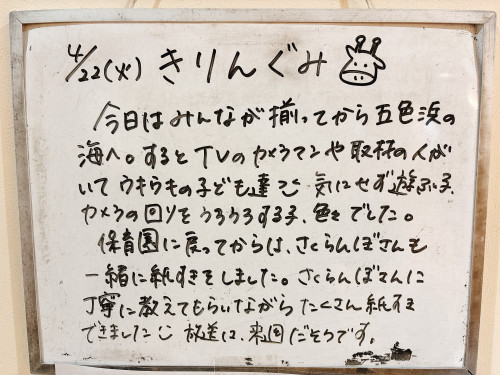 4/22(火) きりんぐみ
今日はみんなが揃ってから五色浜の
海へ。するとTVのカメラマンや取材の人が
いてウキウキの子ども達 気にせず遊ぶ子、
カメラの回りをうろうろする子、色々でした。
保育園に戻ってからは、さくらんぼさんも
一緒に紙すきをしました。さくらんぼさんに
丁寧に教えてもらいながらたくさん紙すき
できました 放送は、来週だそうです。